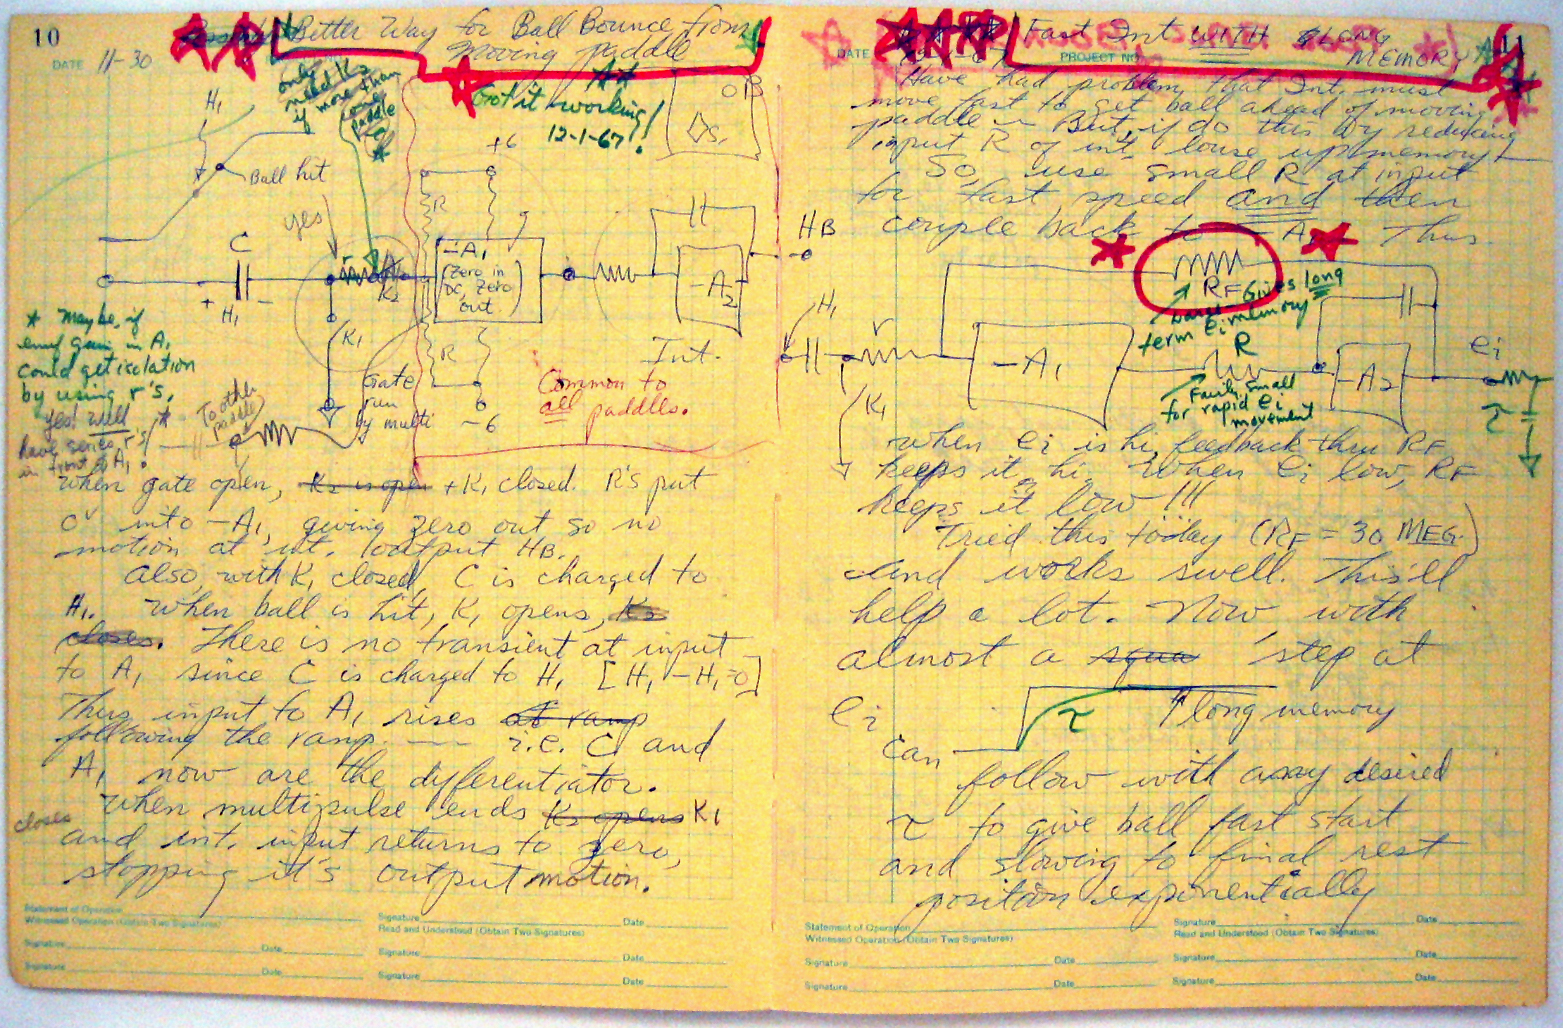 10
DATE 11-30
Better Way for Ball Bounce from
moving paddle
only
need K2
if more than
one
paddle
Got it working!
12-1-67!
H1
Ball hit
yes
C
+ H1 -
r
K2
K1
+6
R
-A1
(Zero in
DC, zero
out)
R
-6
-A2
HB
Int.
Gate
run
by multi
Common to
all paddles.
* Maybe, if
enuf gain in A1
could get isolation
by using r's.
yes! will
have series r's
in front of A1!
To other
paddle
When gate open, K2 is open + K1 closed. R's put
0v into -A1, giving zero out so no
motion at int. output HB.
Also, with K1 closed, C is charged to
H1. When ball is hit, K1 opens, K2
closes. There is no transient at input
to A1 since C is charged to H1 [H1 - H1 = 0]
Thus input to A1 rises at ramp
following the ramp. — i.e. C and
A1 now are the differentiator.
When multipulse ends K2 opens K1
closes
and int. input returns to zero,
stopping it's output motion.
Statement of Operation
Witnessed Operation (Obtain Two Signatures)
Signature Date
Signature Date
Signature Date
Read and Understood (Obtain Two Signatures)
Signature Date
Signature Date
11
DATE
PROJECT NO.
Fast Int WITH LONG
MEMORY
Have had problem that Int. must
move fast to get ball ahead of moving
paddle. But, if do this by reducing
input R of int, louse up memory!
So, use small R at input
for fast speed and then
couple back to -A1. Thus
RF
Gives long
term ei memory
Large
H1
r
K1
-A1
R
Fairly small
for rapid ei
movement
-A2
ei
τ
When ei is hi, feedback thru RF
keeps it hi. When ei low, RF
keeps it low!!!
Tried this today (RF = 30 MEG)
and works swell. This'll
help a lot. Now with
almost a squa step at
ei
τ
long memory
can
follow with any desired
τ to give ball fast start
and slowing to final rest
position exponentially
Statement of Operation
Witnessed Operation (Obtain Two Signatures)
Signature Date
Signature Date
Signature Date
Read and Understood (Obtain Two Signatures)
Signature Date
Signature Date